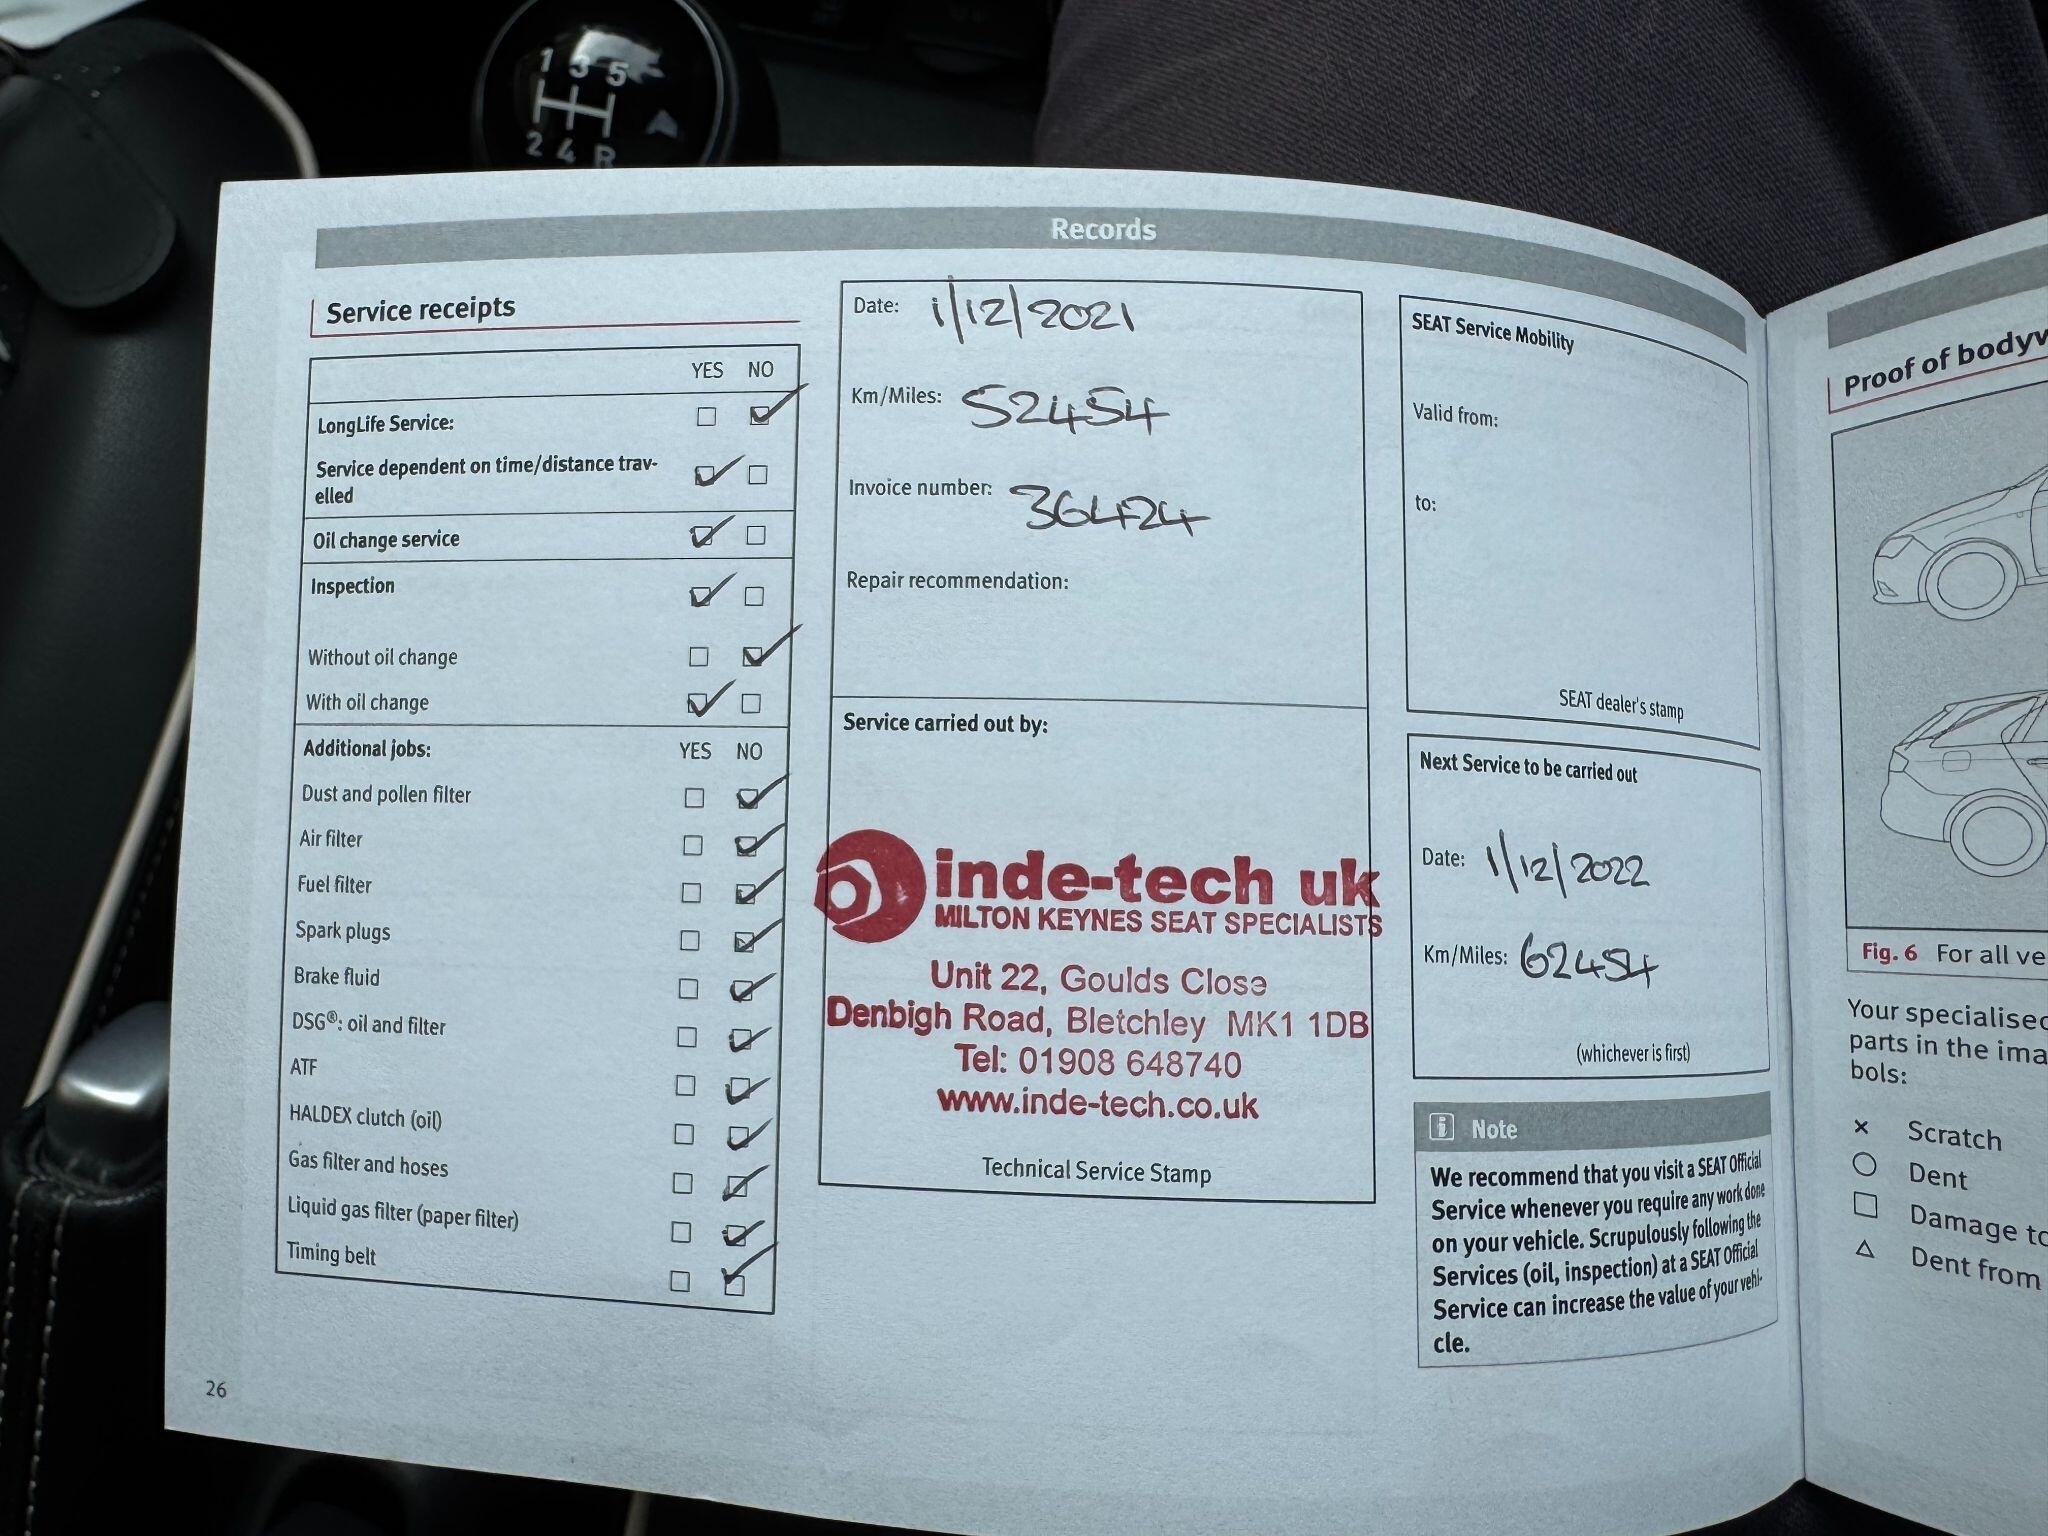 1 3 5
2 4 R
Records
Service receipts
YES NO
LongLife Service:
Service dependent on time/distance trav-
elled
Oil change service
Inspection
Without oil change
With oil change
Additional jobs: YES NO
Dust and pollen filter
Air filter
Fuel filter
Spark plugs
Brake fluid
DSG®: oil and filter
ATF
HALDEX clutch (oil)
Gas filter and hoses
Liquid gas filter (paper filter)
Timing belt
26
Date: 1/12/2021
Km/Miles: 52454
Invoice number: 36424
Repair recommendation:
Service carried out by:
inde-tech uk
MILTON KEYNES SEAT SPECIALISTS
Unit 22, Goulds Close
Denbigh Road, Bletchley MK1 1DB
Tel: 01908 648740
www.inde-tech.co.uk
Technical Service Stamp
SEAT Service Mobility
Valid from:
to:
SEAT dealer's stamp
Next Service to be carried out
Date: 1/12/2022
Km/Miles: 62454
(whichever is first)
i Note
We recommend that you visit a SEAT Official
Service whenever you require any work done
on your vehicle. Scrupulously following the
Services (oil, inspection) at a SEAT Official
Service can increase the value of your vehi-
cle.
Proof of bodyw
Fig. 6 For all ve
Your specialised
parts in the ima
bols:
× Scratch
○ Dent
□ Damage to
△ Dent from